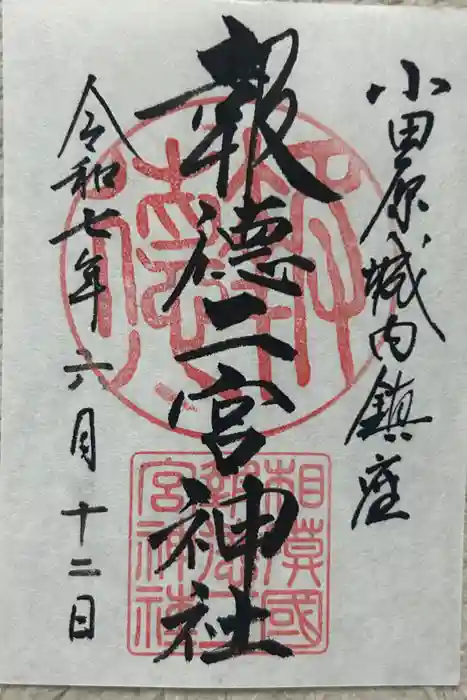 小田原城内鎮座
報徳二宮神社
令和七年六月十二日
報徳
相模國
報徳二
宮神社